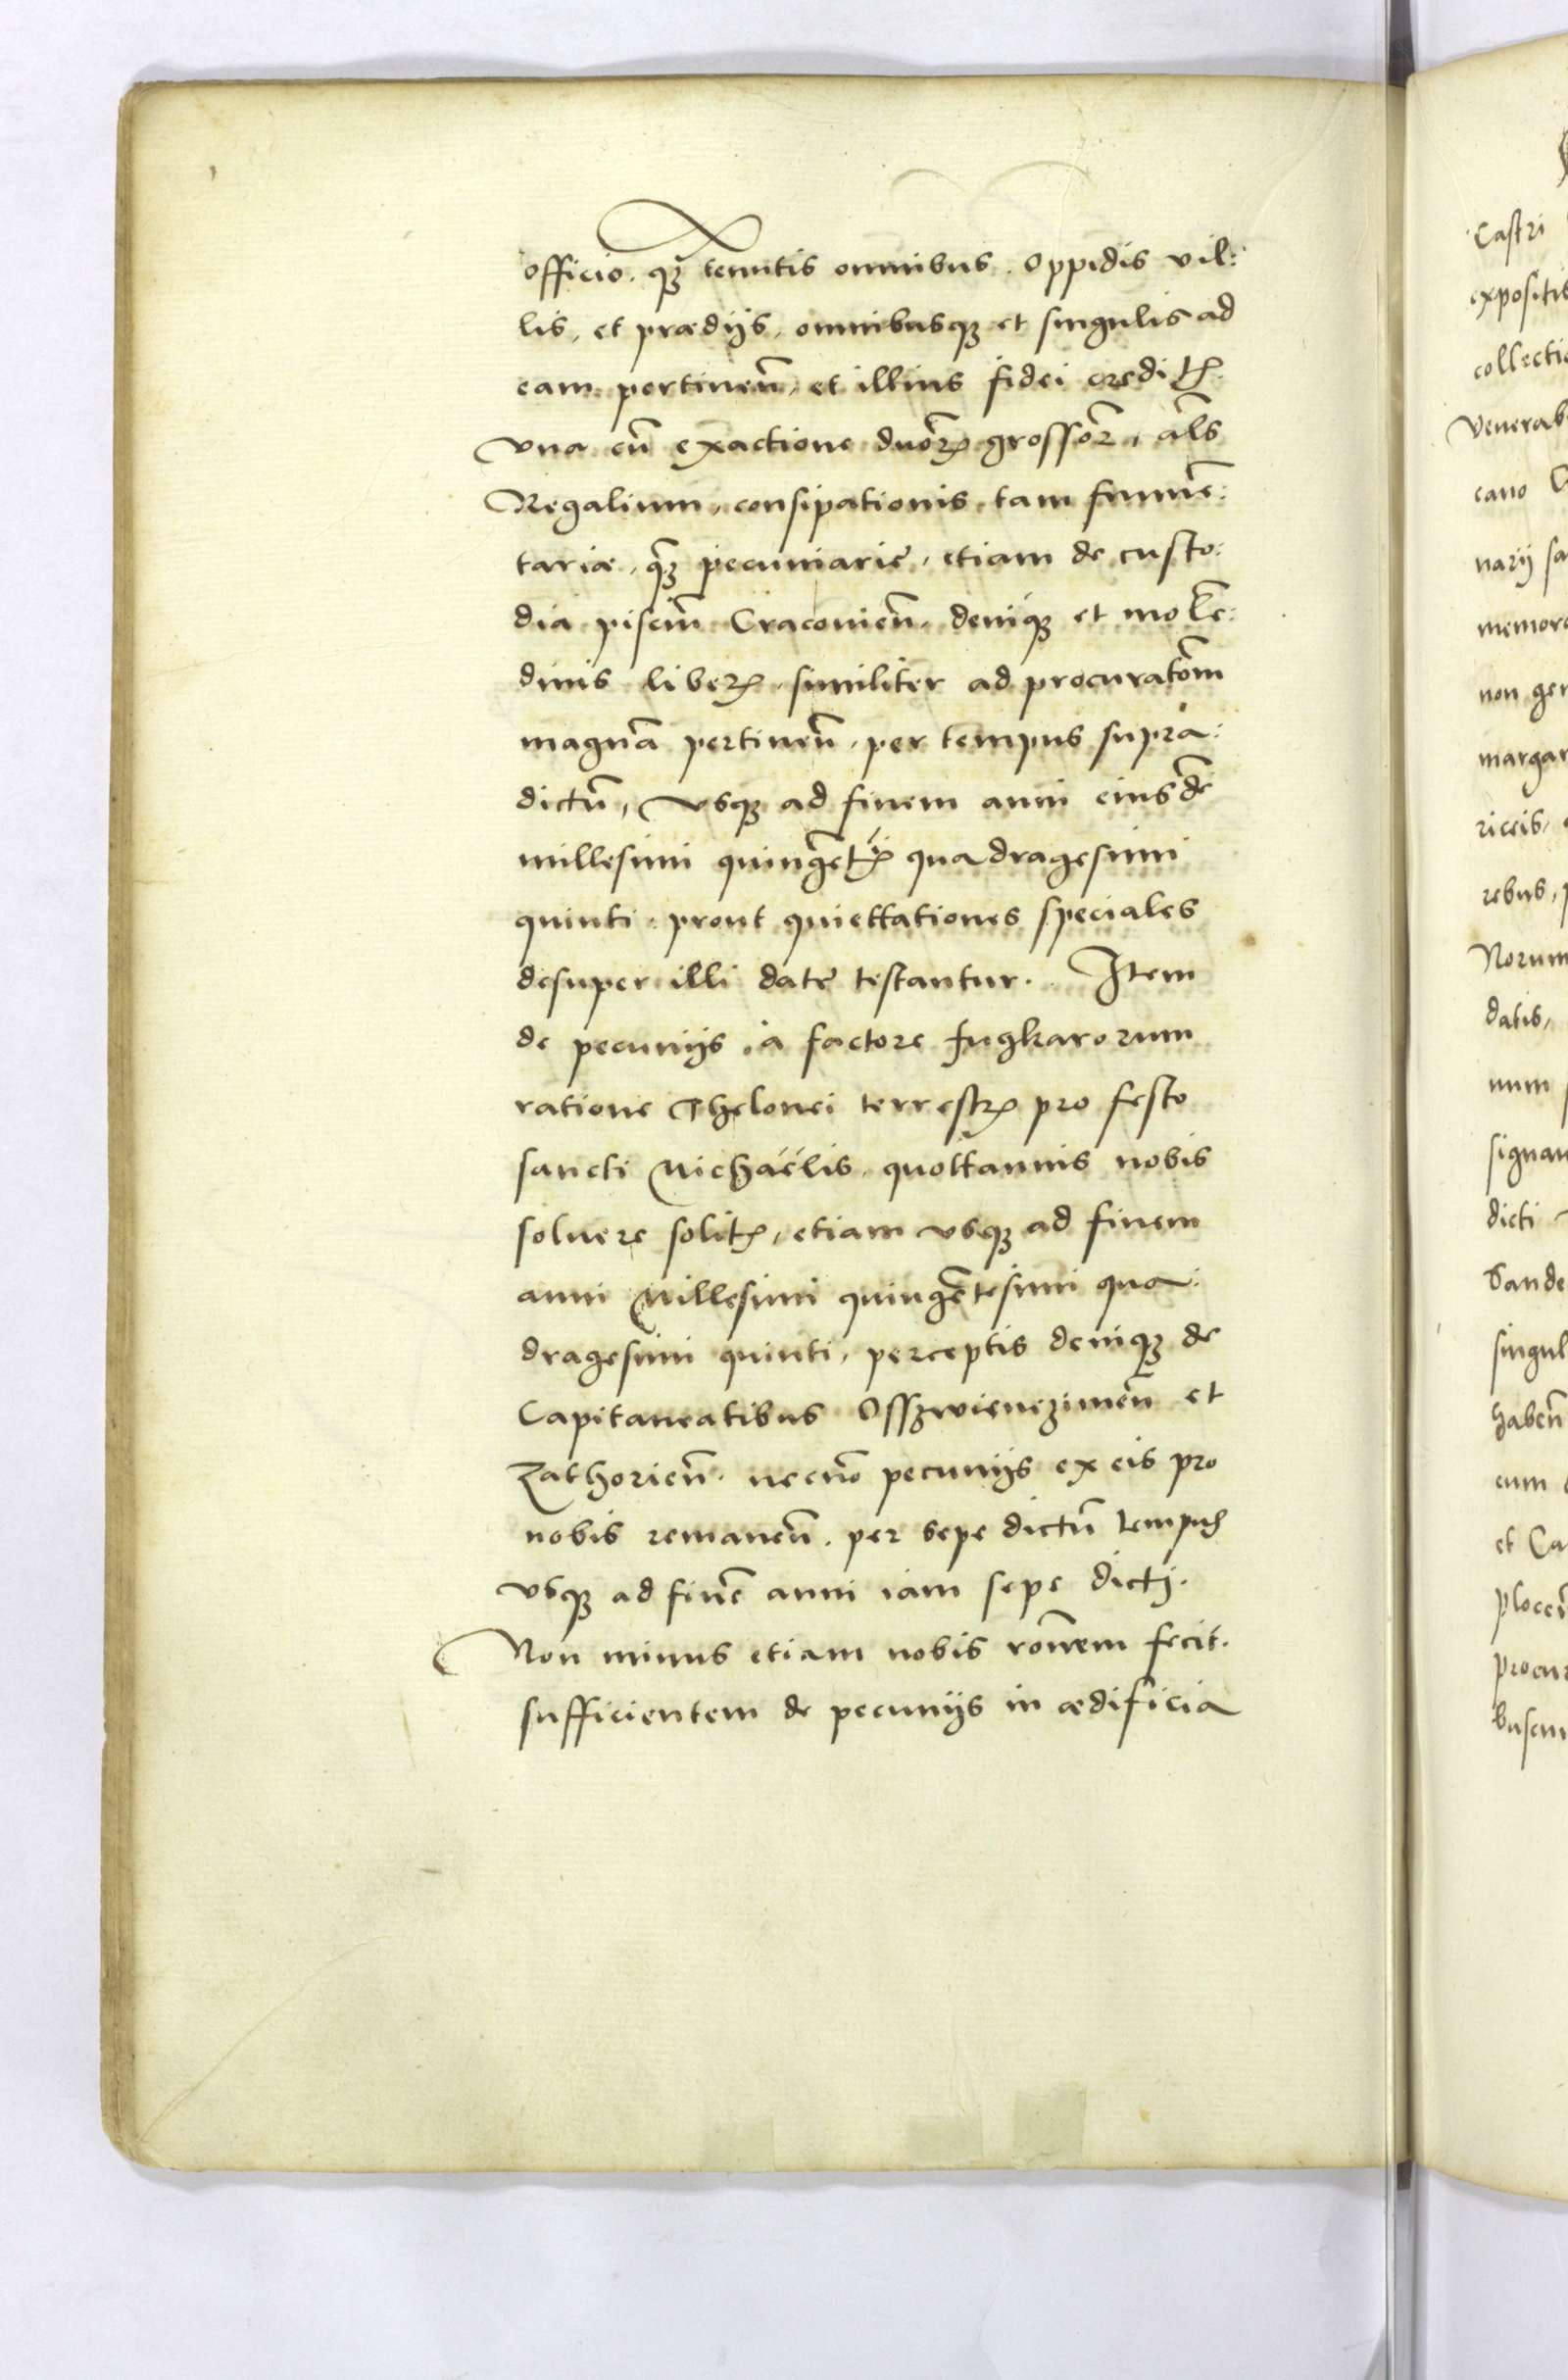 officio. quam tenutis omnibus. oppidis vil:
lis, et prædijs, omnibusque et singulis ad
eam pertineñ, et illius fidei credit
vna cũ exactione duorũ grossorũ, als
Regalium, consipationis tam frumẽ:
tariæ, quam pecuniariæ, etiam de custo:
dia pisciũ Cracovieñ. denique et molẽ:
dinis liberis similiter ad procuratõm
magnã pertineñ, per tempus supra:
dictũ, vsque ad finem anni eiusdẽ
millesimi quingẽti quadragesimi
quinti, prout quiettationes speciales
desuper illi datę testantur. Item
de pecunijs à factore fugkarorum
ratione Thelonei terrestris pro festo
sancti Michaëlis quottannis nobis
soluere solitis, etiam vsque ad finem
anni Millesimi quingẽtesimi qua:
dragesimi quinti, perceptis denique de
Capitaneatibus Osszwienczimeñ et
Zathorieñ. necnõ pecunijs ex eis pro
nobis remaneñ. per sepe dictũ tempus
vsque ad finẽ anni iam sepe dicti.
Non minus etiam nobis rõnem fecit.
sufficientem de pecunijs in ædificia
Castri
expositis
collectio
Venerab
cano
narij sa
memora
non ger
margar
riceis,
rebus,
Norum
datis,
num
signan
dicti
Sande
singul
habeñ
cum
et Ca
ploceñ
procur